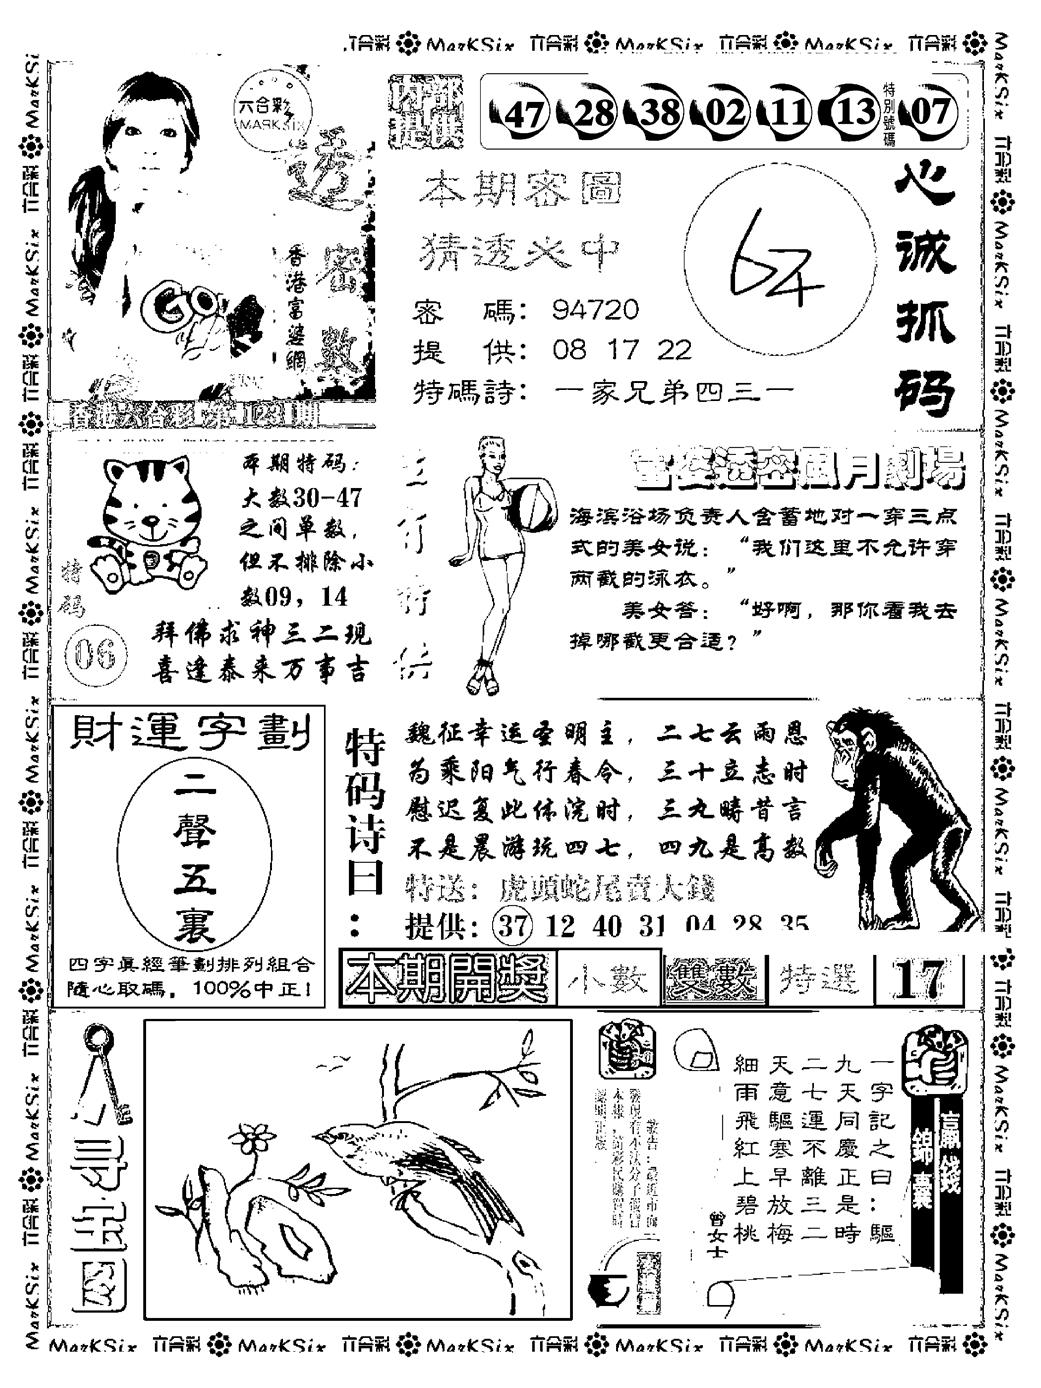 六合彩 MarKSix 六合彩 MarKSix 六合彩 MarKSix 六合彩
六合彩
MARKSIX
透密數
香港富婆網
香港六合彩 第1231期
内部
提供
47 28 38 02 11 13 特別號碼 07
本期密圖
猜透必中
密 碼：94720
提 供：08 17 22
特碼詩：一家兄弟四三一
64
心诚抓码
本期特码：
大数30-47
之间单数，
但不排除小
数09，14
特码
06
拜佛求神三二现
喜逢泰来万事吉
富婆透密風月劇場
海滨浴场负责人含蓄地对一穿三点
式的美女说：“我们这里不允许穿
两截的泳衣。”
美女答：“好啊，那你看我去
掉哪截更合适？”
財運字劃
二聲五裏
四字眞經筆劃排列組合
隨心取碼，100%中正！
特码诗曰：
魏征幸运圣明主，二七云雨恩
为乘阳气行春令，三十立志时
慰迟复此体浣时，三九畴昔言
不是晨游玩四七，四九是高数
特送：虎頭蛇尾賣大錢
提供：37 12 40 31 04 28 35
本期開獎 小數 雙數 特選 17
寻宝图
贏錢錦囊
一字記之曰：驅
九天同慶正是時
二七運不離三二
天意驅寒早放梅
細雨飛紅上碧桃
曾女士
MarKSix 六合彩 MarKSix 六合彩 MarKSix 六合彩 MarKSix 六合彩 MarKSix 六合彩